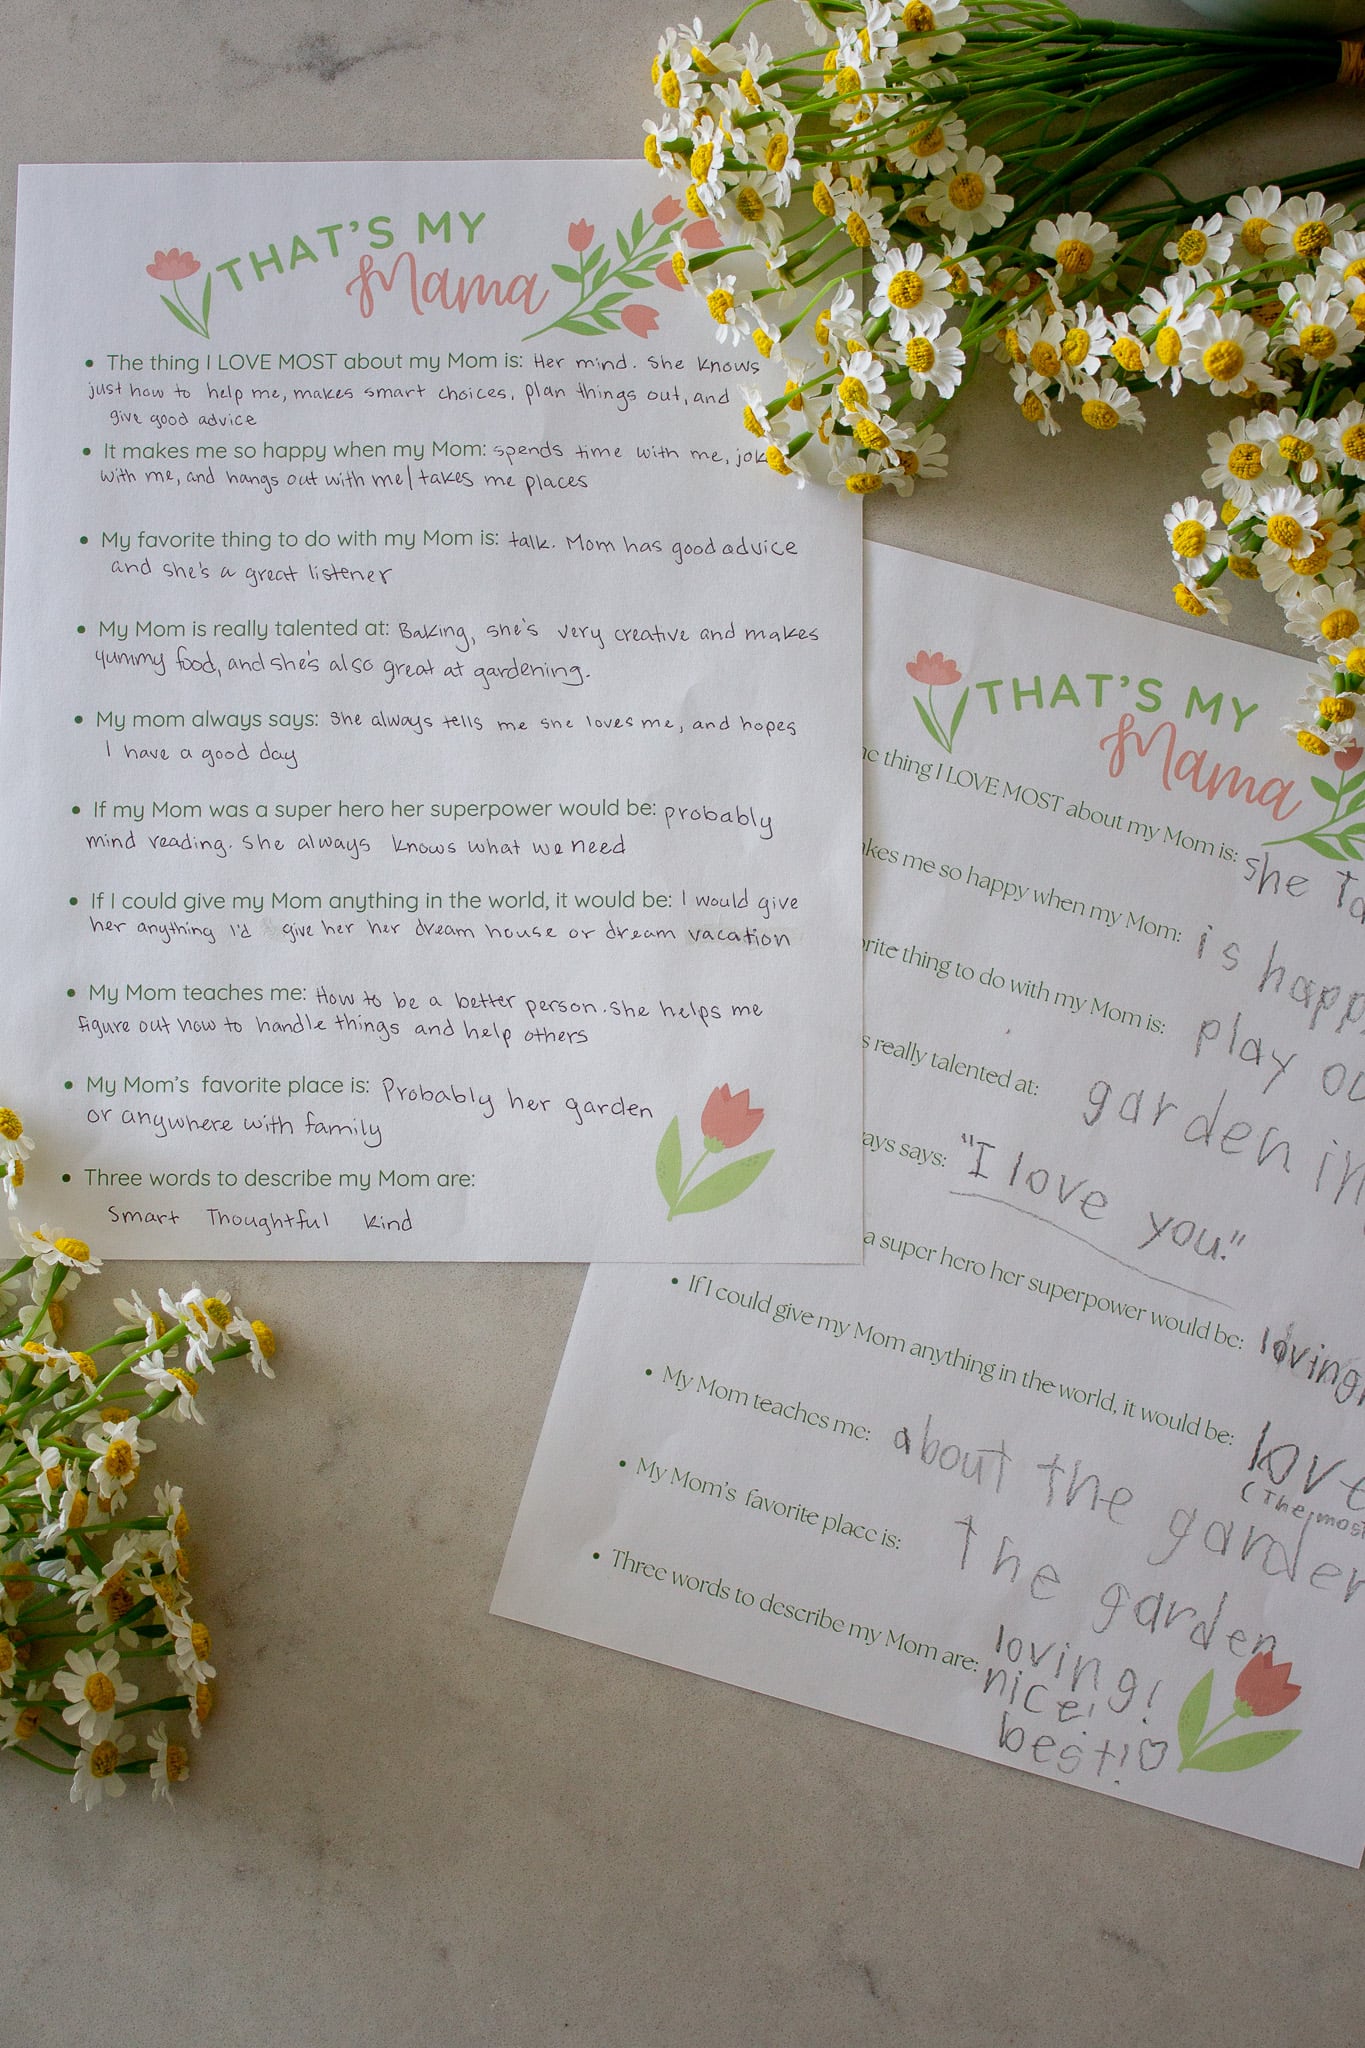 THAT'S MY
Mama
• The thing I LOVE MOST about my Mom is: Her mind. She knows
just how to help me, makes smart choices, plan things out, and
give good advice
• It makes me so happy when my Mom: spends time with me,
with me, and hangs out with me/takes me places
• My favorite thing to do with my Mom is: talk. Mom has good advice
and she's a great listener
• My Mom is really talented at: Baking, she's very creative and makes
yummy food, and she's also great at gardening.
• My mom always says: She always tells me she loves me, and hopes
I have a good day
• If my Mom was a super hero her superpower would be: probably
mind reading. She always knows what we need
• If I could give my Mom anything in the world, it would be: I would give
her anything I'd give her her dream house or dream vacation
• My Mom teaches me: How to be a better person. She helps me
figure out how to handle things and help others
• My Mom's favorite place is: Probably her garden
or anywhere with family
• Three words to describe my Mom are:
Smart Thoughtful Kind
THAT'S MY
Mama
thing I LOVE MOST about my Mom is: she
me so happy when my Mom: is
thing to do with my Mom is: play
really talented at: garden
says: "I love you."
a super hero her superpower would be: loving
• If I could give my Mom anything in the world, it would be: love
(The most
• My Mom teaches me: about the garden
• My Mom's favorite place is: The garden
• Three words to describe my Mom are: loving!
nice!
best!